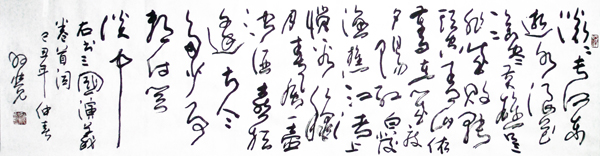 滚滚长江东
逝水浪花
淘尽英雄是
非成败转
头空青山依
旧在几度
夕阳红白发
渔樵江渚上
惯看秋
月春风一壶
浊酒喜相
逢古今
多少事
都付笑
谈中
右书三國演義
卷首词
己丑年仲春